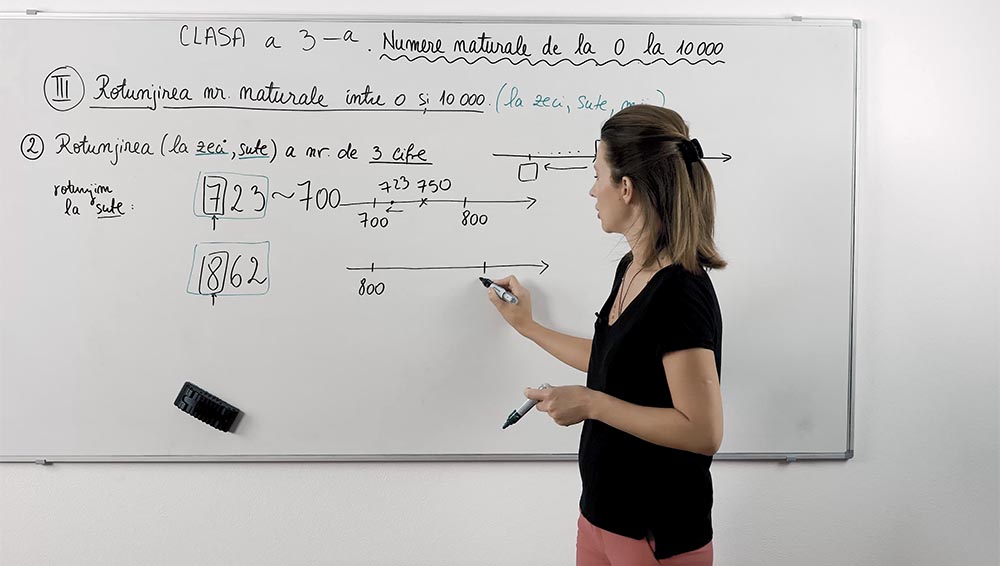 CLASA a 3-a. Numere naturale de la 0 la 10 000
III Rotunjirea nr. naturale între 0 și 10 000. (la zeci, sute,
2 Rotunjirea (la zeci, sute) a nr. de 3 cifre
rotunjim
la sute:
723 ~ 700
723 750
700 800
862
800